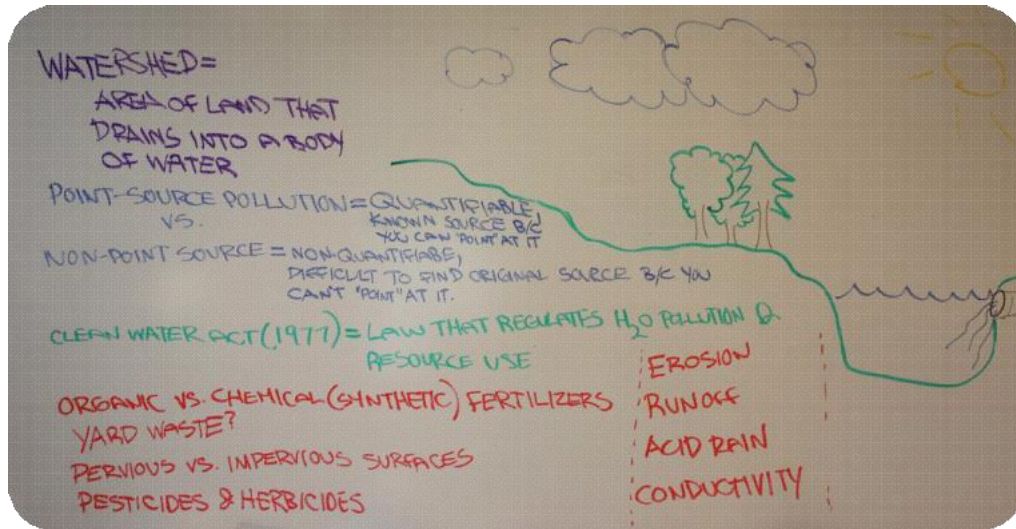 WATERSHED=
AREA OF LAND THAT
DRAINS INTO A BODY
OF WATER
POINT-SOURCE POLLUTION= QUANTIFIABLE,
VS.
KNOWN SOURCE B/C
YOU CAN "POINT" AT IT
NON-POINT SOURCE = NON-QUANTIFIABE,
DIFFICULT TO FIND ORIGINAL SOURCE B/C YOU
CAN'T "POINT" AT IT.
CLEAN WATER ACT (1977) = LAW THAT REGULATES H₂O POLLUTION &
RESOURCE USE
ORGANIC VS. CHEMICAL (SYNTHETIC) FERTILIZERS
YARD WASTE?
PERVIOUS VS. IMPERVIOUS SURFACES
PESTICIDES & HERBICIDES
EROSION
RUNOFF
ACID RAIN
CONDUCTIVITY